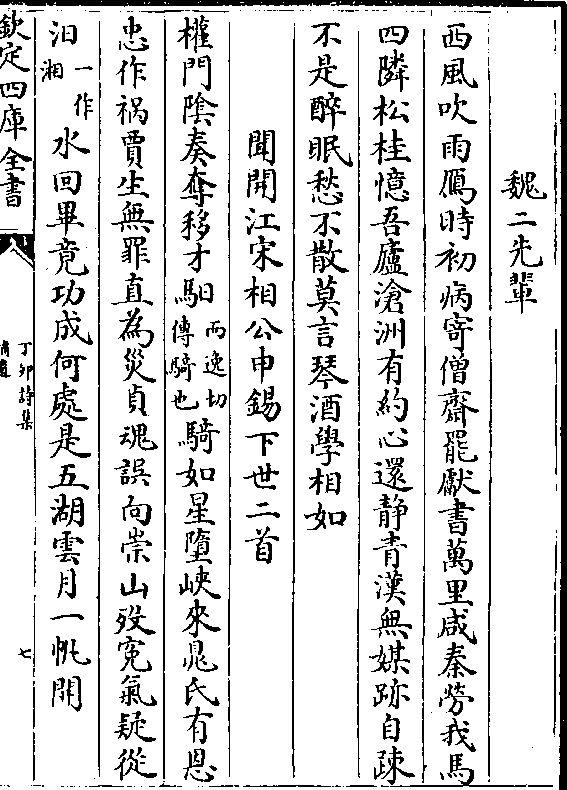 魏二先輩
西風吹雨鴈時初病寄僧齋罷獻書萬里咸秦勞我馬
四隣松桂憶吾廬滄洲有約心還静青漢無媒跡自疎
不是醉眠愁不散莫言琴酒學相如
聞開江宋相公申錫下世二首
權門陰奏奪移才馹而逸切傳騎也騎如星墮峽來晁氏有恩
忠作禍賈生無罪直為災貞魂誤向崇山歿寃氣疑從
汨一作湘水回畢竟功成何處是五湖雲月一帆開
欽定四庫全書
丁卯詩集
七